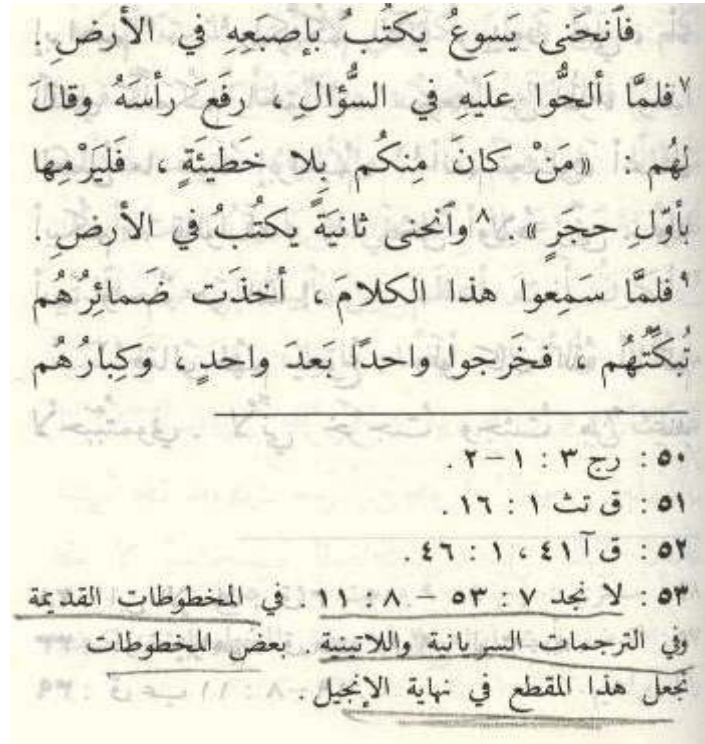 فٱنحَنى يَسوعُ يكتُبُ بإصبَعِهِ في الأرضِ.
٧ فلمَّا ألحُّوا علَيهِ في السُّؤالِ ، رفَعَ رأسَهُ وقالَ
لهُم : «مَنْ كانَ مِنكُم بِلا خَطيئَةٍ ، فَليَرْمِها
بأوّلِ حجَرٍ ». ٨ وٱنحنى ثانيَةً يكتُبُ في الأرضِ.
٩ فلمَّا سَمِعوا هذا الكلامَ ، أخذَت ضَمائِرُهُم
تُبكِّتُهُم ، فخَرجوا واحدًا بَعدَ واحِدٍ ، وكِبارُهُم
٥٠ : رج ٣ : ١-٢ .
٥١ : ق تث ١ : ١٦ .
٥٢ : ق آ ٤١ ، ١ : ٤٦ .
٥٣ : لا نجد ٧ : ٥٣ – ٨ : ١١ . في المخطوطات القديمة
وفي الترجمات السريانية واللاتينية . بعض المخطوطات
تجعل هذا المقطع في نهاية الإنجيل .